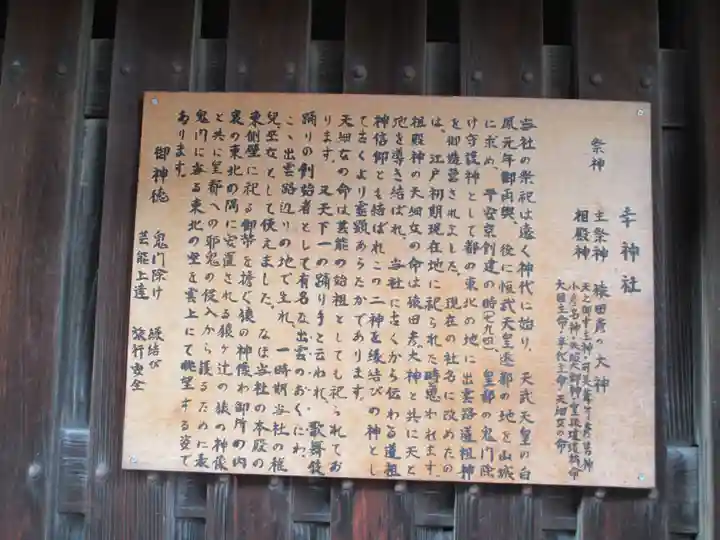 幸神社
祭神　主祭神　猿田彦の大神
相殿神　天之御中主神・可美葦牙彦舅神
少彦名神・大日孁神・皇孫瓊瓊杵命
大国主命・事代主命・天細女の命
当社の祭祀は遠く神代に始り、天武天皇の白
鳳元年御再興、後に恒武天皇遷都の地を山城
に求め、平安京創建の時(七九四)皇都の鬼門除
け守護神として都の東北の地に出雲路道祖神
を御造営されました。現在の社名に改めたの
は、江戸初期現在地に祀られた時と思われます。
祖殿神の天細女の命は猿田彦大神と共に天と
地を導き結ばれ、当社に古くから伝わる道祖
神信仰とも結ばれこの二神を縁結びの神とし
て古くより霊顕あらたかであります。
天細女の命は芸能の始祖としても祀られてお
ります。又天下一の踊り手と云われ、歌舞伎
踊りの創始者として有名な出雲のおくにわ、
こゝ出雲路辺りの地で生れ、一時期当社の稚
児巫女として使えました。なほ当社の本殿の
東側壁に祀る御幣を擔ぐ猿の神像わ御所の内
裏の東北の隅に安置される猿ヶ辻の猿の神像
と共に皇都への邪鬼の侵入から護るために表
鬼門に当る東北の空を雲上にて眺望する姿で
あります。
御神徳　鬼門除け　縁結び
芸能上達　旅行安全